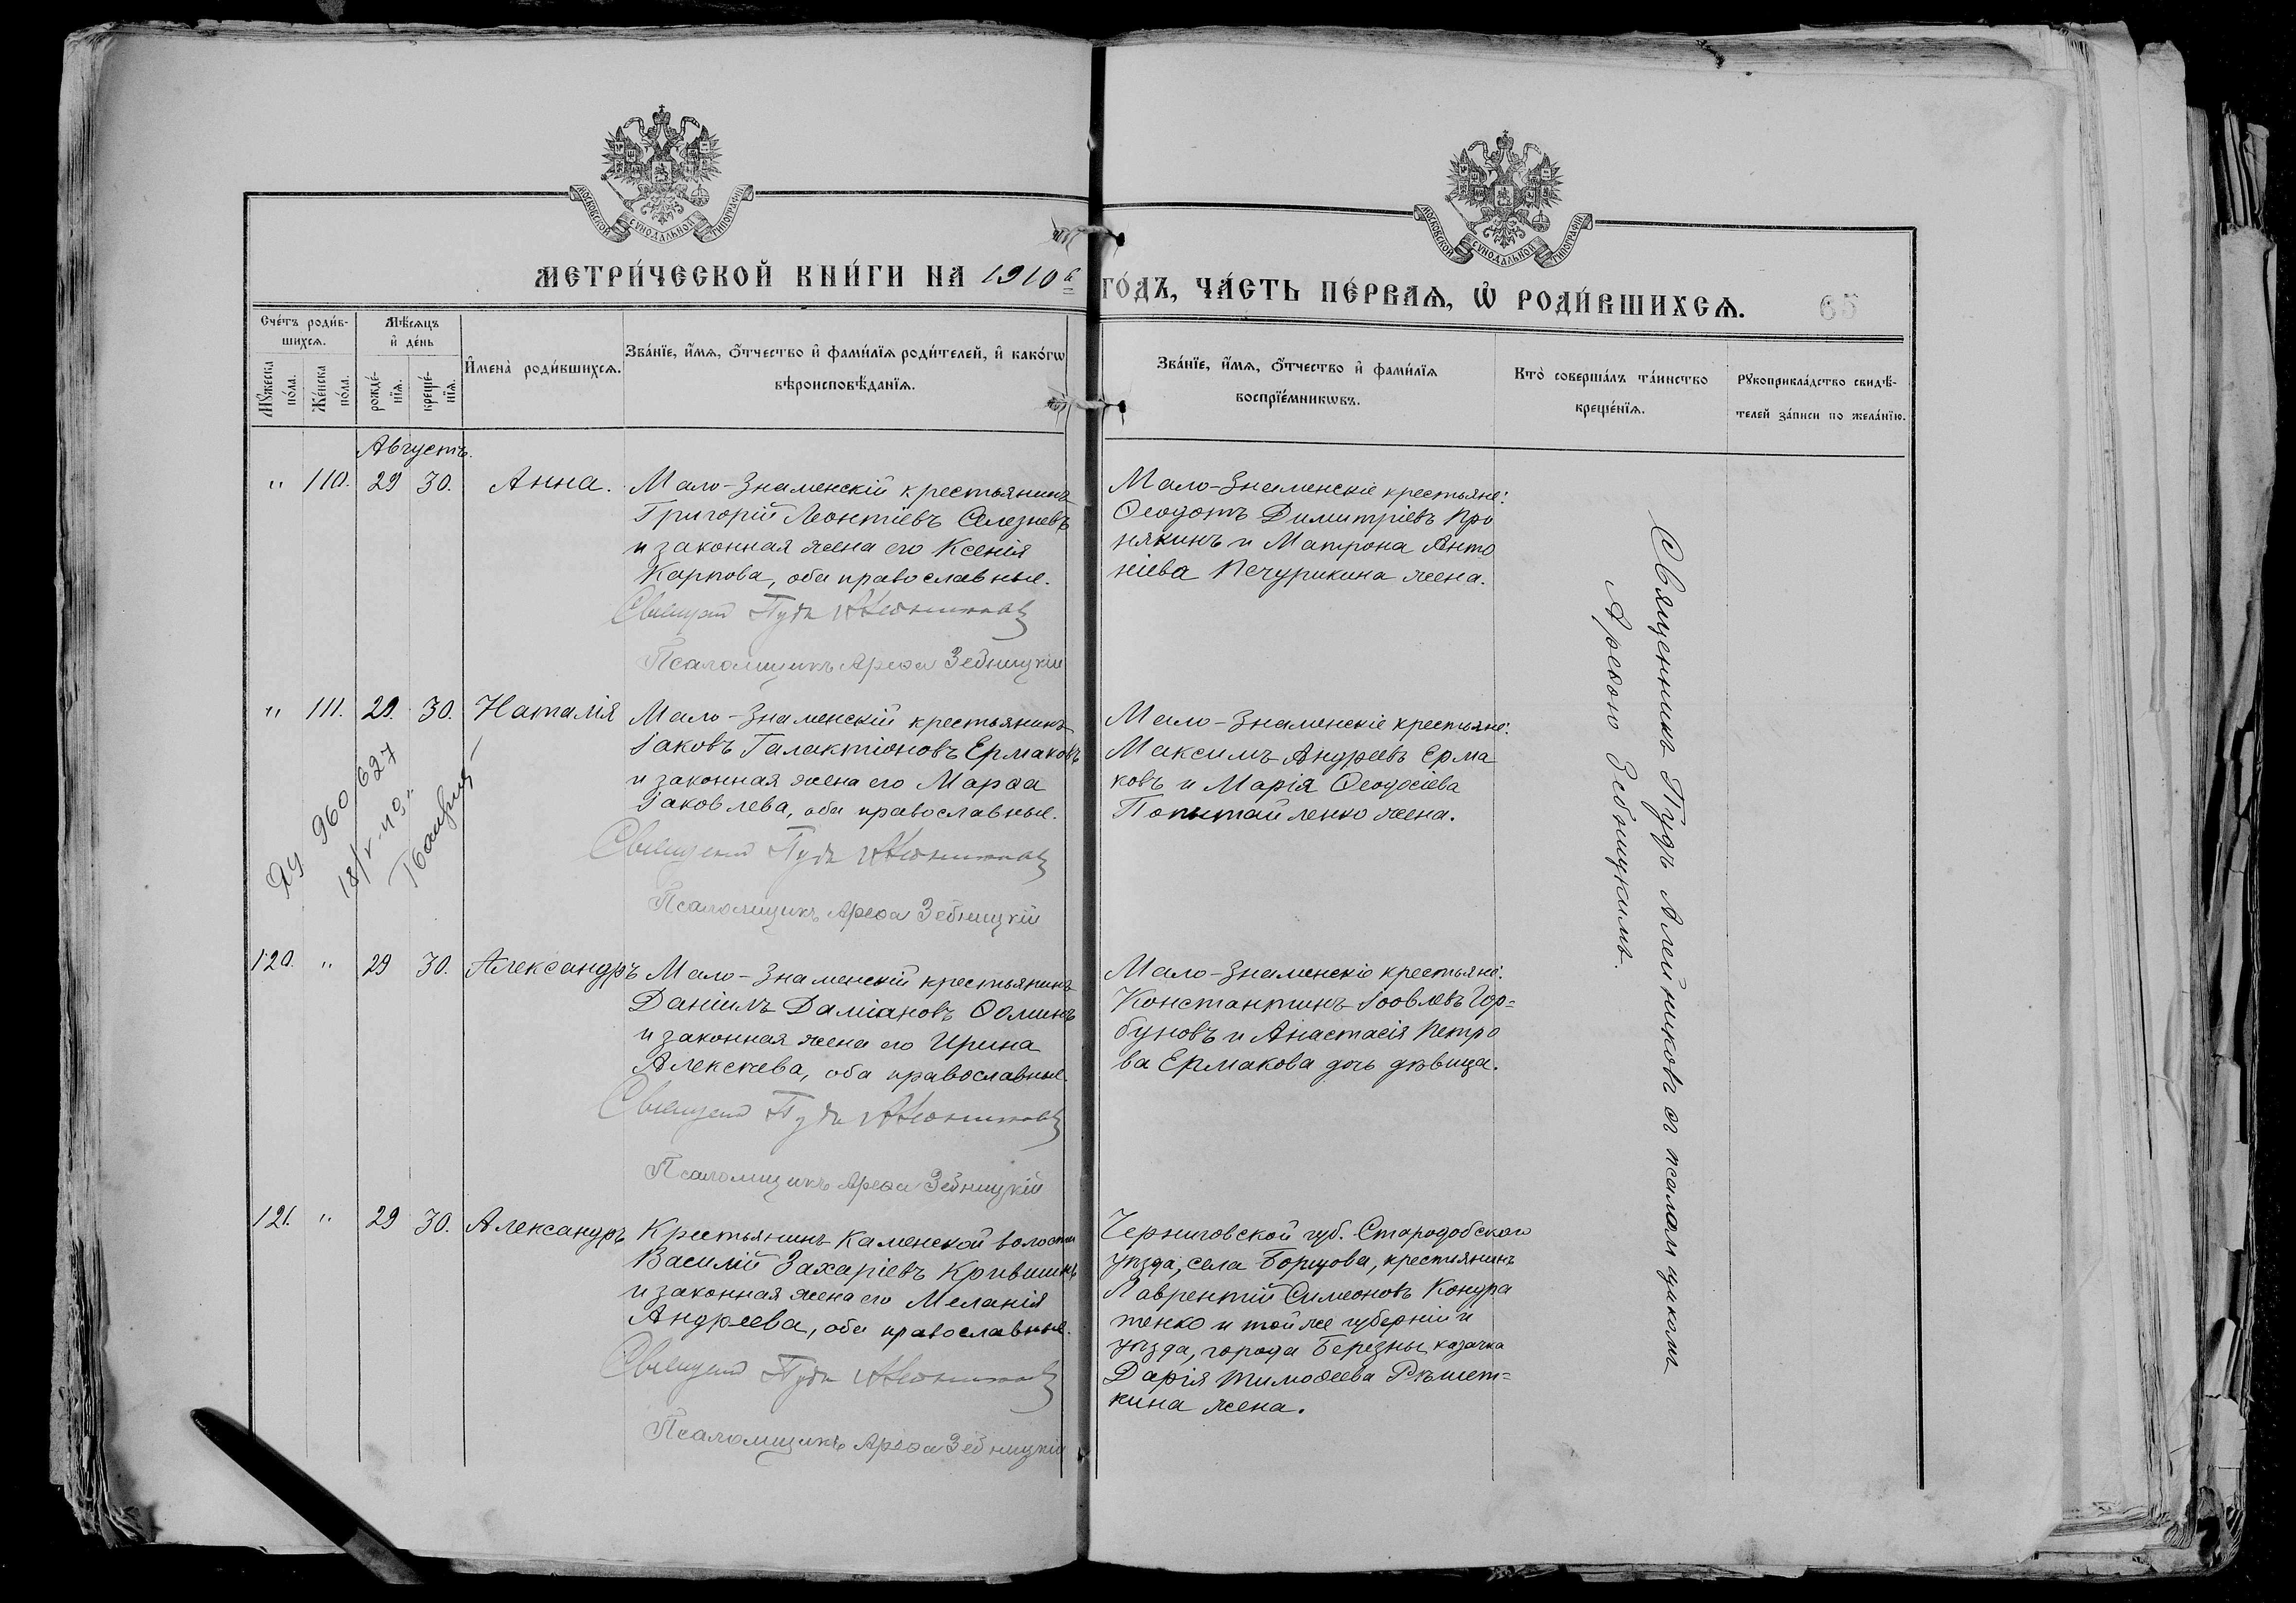 МОСКОВСКОЙ СѴНОДАЛЬНОЙ ТИПОГРАФІИ
МОСКОВСКОЙ СѴНОДАЛЬНОЙ ТИПОГРАФІИ
МЕТРИ́ЧЕСКОЙ КНИ́ГИ НА 1910й ГО́ДЪ, ЧА́СТЬ ПЕ́РВАѦ, Ѽ РОДИ́ВШИХСѦ.
65
Сче́тъ роди́в-
шихсѧ.
Мꙋ́жеска
по́ла.
Же́нска
по́ла.
Мѣ́сѧцъ
и҆ де́нь
рожде́-
нїѧ.
креще́-
нїѧ.
И҆мена̀ роди́вшихсѧ.
Зва́нїе, и҆́мѧ, ѻ҆́тчество и҆ фами́лїѧ роди́телей, и҆ како́гѡ
вѣроисповѣ́данїѧ.
Зва́нїе, и҆́мѧ, ѻ҆́тчество и҆ фами́лїѧ
воспрїе́мникѡвъ.
Кто̀ соверша́лъ та́инство
креще́нїѧ.
Рꙋкоприкла́дство свидѣ́-
телей за́писи по жела́нїю.
Августъ.
" 110. 29 30. Анна.
Мало-Знаменскій крестьянинъ
Григорій Леонтіевъ Селезневъ
и законная жена его Ксенія
Карпова, оба православные.
Священ Пудъ Алейниковъ
Псаломщикъ Арефа Зебницкій
Мало-Знаменскіе крестьяне:
Ѳеодотъ Димитріевъ Про
някинъ и Матрона Анто
ніева Печурикина жена.
" 111. 29. 30. Наталія
Мало-Знаменскій крестьянинъ
Іаковъ Галактіоновъ Ермаковъ
и законная жена его Марѳа
Іаковлева, оба православные.
Священ Пудъ Алейниковъ
Псаломщикъ Арефа Зебницкій
Мало-Знаменскіе крестьяне:
Максимъ Андреевъ Ерма
ковъ и Марія Ѳеодосіева
Попытайленко жена.
960627
120. " 29 30. Александръ
Мало-Знаменскій крестьянинъ
Даніилъ Даміановъ Ѳоминъ
и законная жена его Ирина
Алексѣева, оба православные.
Священ Пудъ Алейниковъ
Псаломщикъ Арефа Зебницкій
Мало-Знаменскіе крестьяне:
Константинъ Іовлевъ Гор=
буновъ и Анастасія Петро
ва Ермакова дочь дѣвица.
121. " 29 30. Александръ
Крестьянинъ Каменской волости
Василій Захаріевъ Крившинъ
и законная жена его Меланія
Андреева, оба православные.
Священ Пудъ Алейниковъ
Псаломщикъ Арефа Зебницкій
Черниговской губ. Стародобского
уѣзда, села Борщова, крестьянинъ
Лаврентій Симеоновъ Кондра
тенко и той же губерніи и
уѣзда, города Березны казачка
Дарія Тимоѳеева Рѣшет=
кина жена.
Священникъ Пудъ Алейниковъ съ псаломщикомъ
Арефою Зебницкимъ.